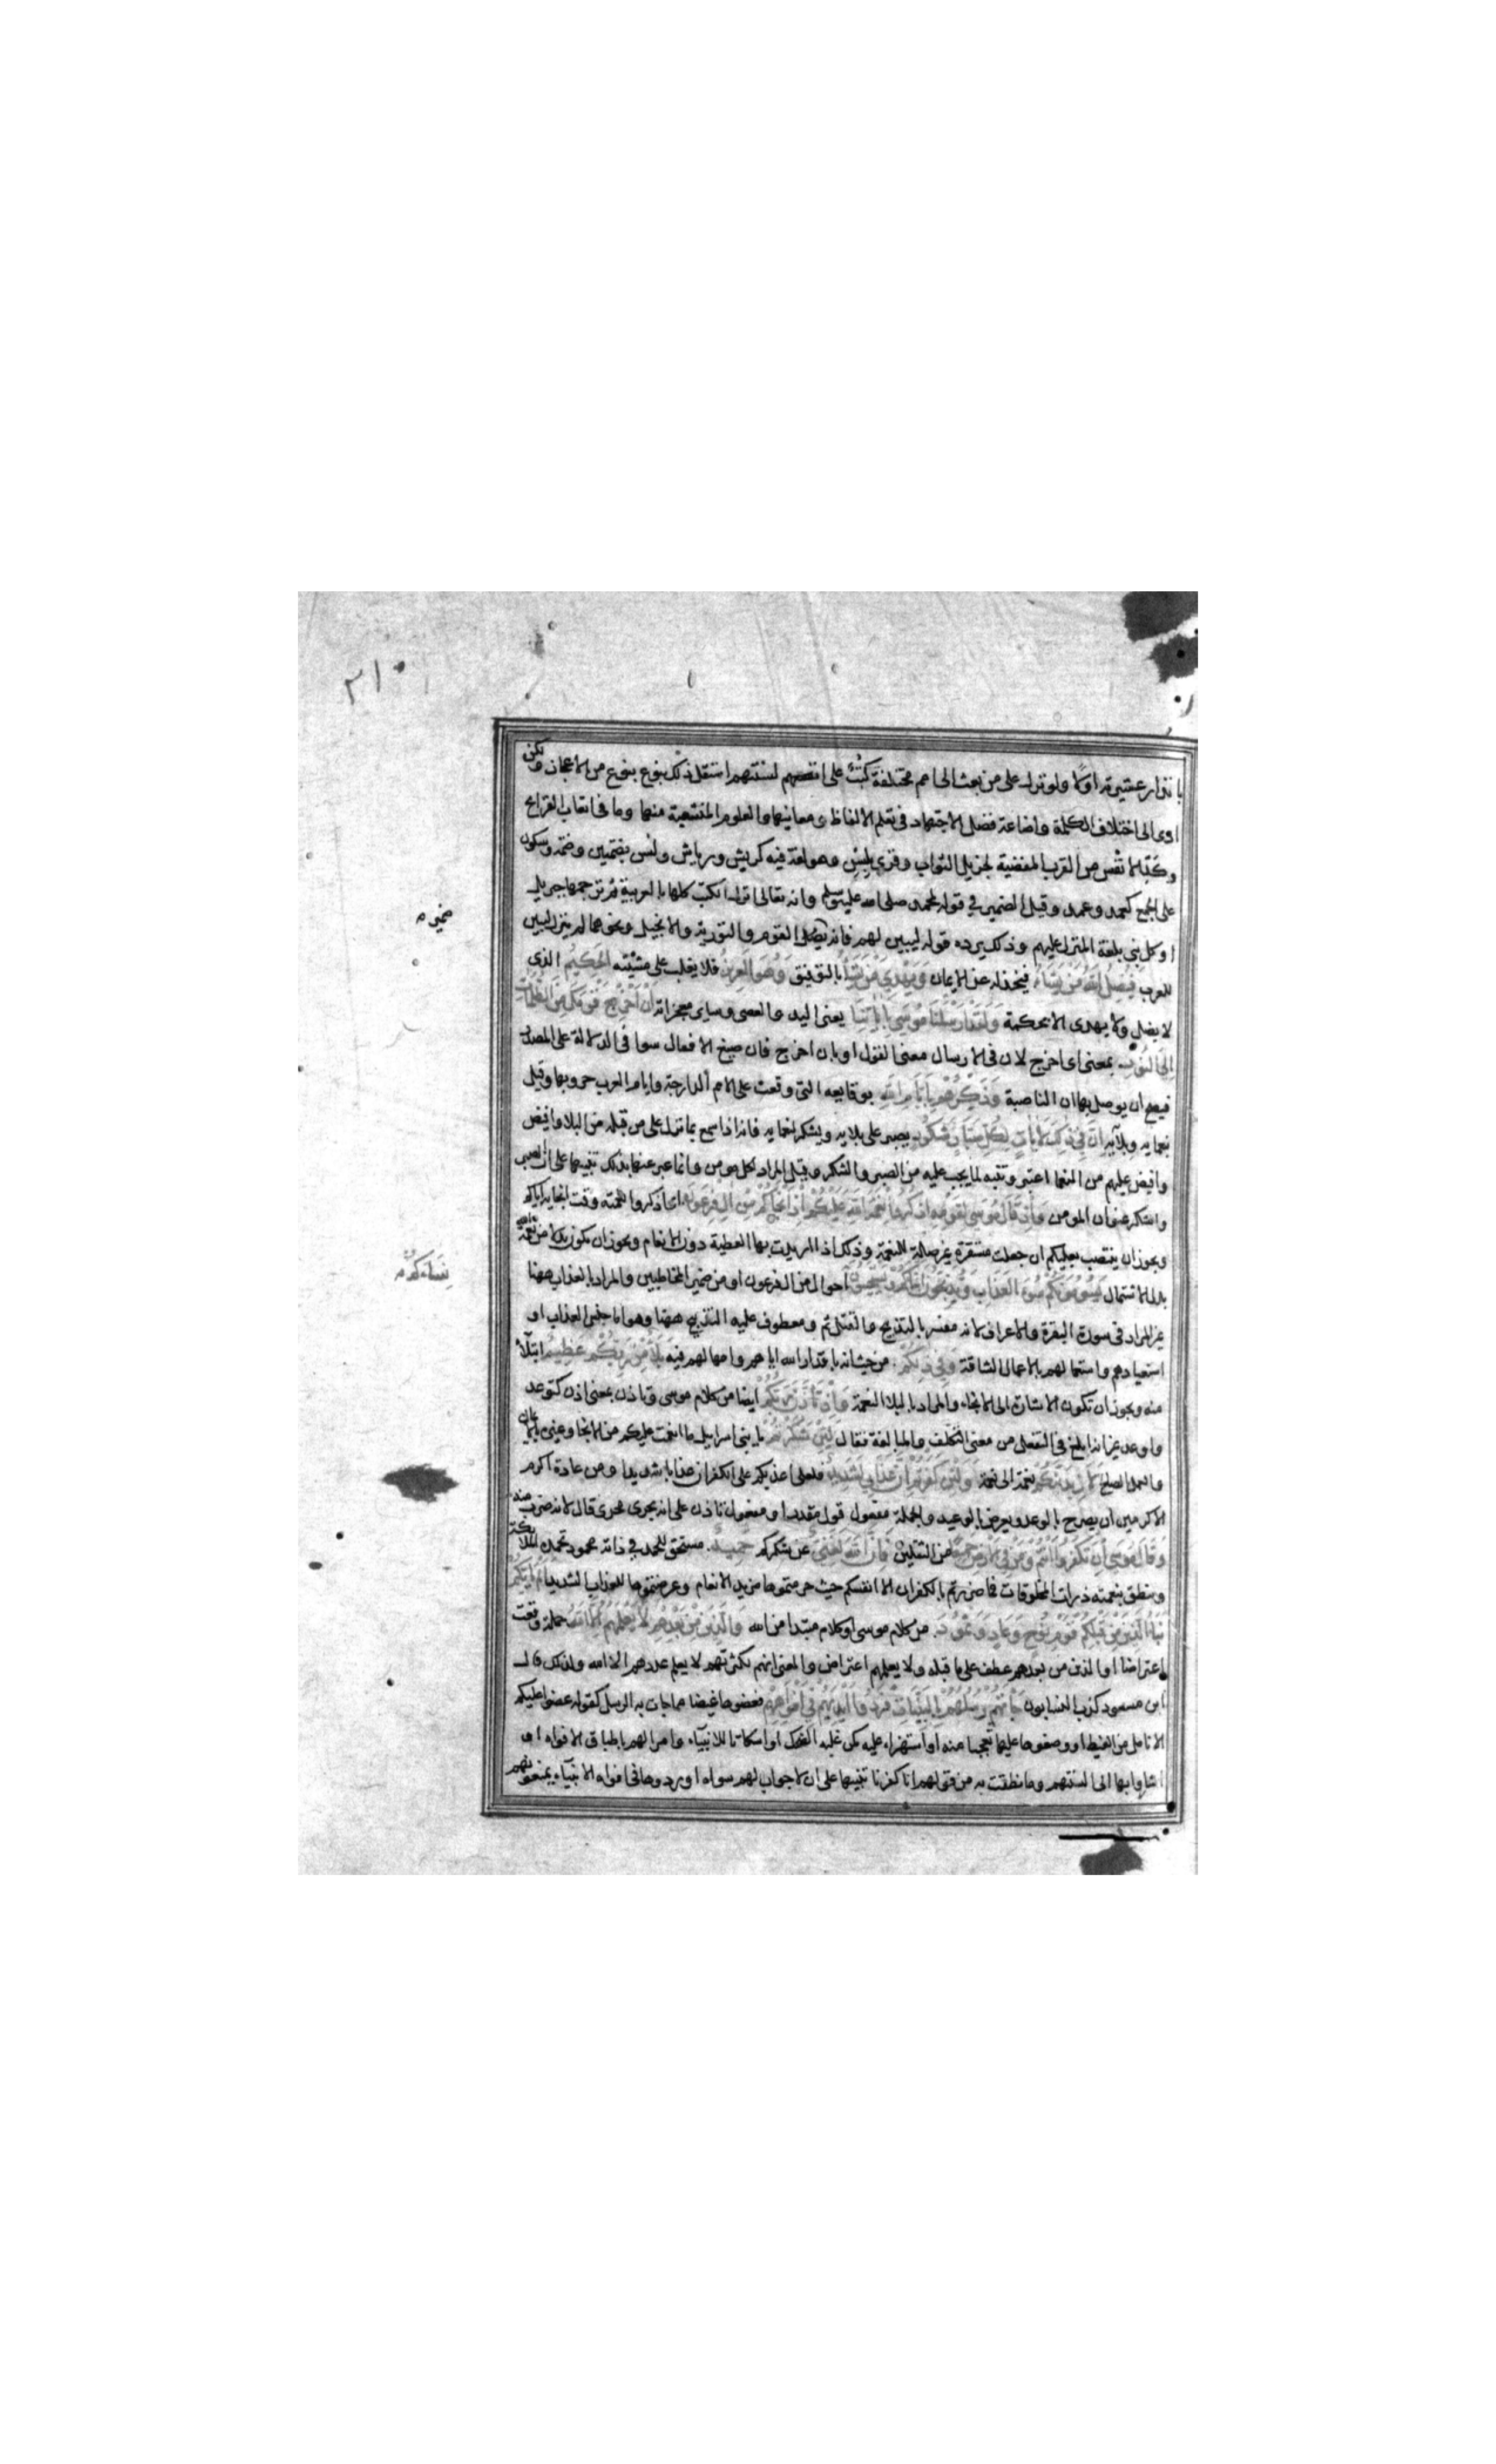 ٣١٠
بانذار عشيرته اولا ولو نزل على من بعث الى امم مختلفة كتب على السنتهم استقل ذلك بنوع من الاعجاز ولكن
ادى الى اختلاف الكلمة واضاعة فضل الاجتهاد في تعلم الالفاظ ومعانيها والعلوم المتشعبة منها وما في اتعاب القرايح
وكد الانفس من القرب المفضية لجزيل الثواب وقرئ بلسن وهو لغة فيه كريش ورياش ولسن بضمتين وضمة وسكون
على الجمع كعمد وعمد وقيل الضمير في قوله لمحمد صلى الله عليه وسلم وانه تعالى انزل الكتب كلها بالعربية ثم ترجمها جبريل
او كل نبي بلغة المنزل عليهم وذلك يرده قوله ليبين لهم فانه القوم والتورية والانجيل ونحوهما لم ينزل ليبين
للعرب فيضل الله من يشاء فيخذله عن الايمان ويهدي من يشاء بالتوفيق وهو العزيز فلا يغلب على مشيته الحكيم الذى
لا يضل ولا يهدى الا بحكمة ولقد ارسلنا موسى باياتنا يعنى اليد والعصى وساير معجزاته ان اخرج قومك من الظلمات
الى النور بمعنى اى اخرج لان في الارسال معنى القول او بان اخرج فان صيغ الافعال سوا في الدلالة على المصدر
فيصح ان يوصل بها ان الناصبة وذكرهم بايام الله بوقايعه التى وقعت على الامم الدارجة وايام العرب حروبها وقيل
بنعمايه وبلايه ان في ذلك لايات لكل صبار شكور يصبر على بلايه ويشكر لنعمايه فانه اذا سمع بما نزل على من قبله من البلا وافيض
وافيض عليهم من النعما اعتبر وتنبه لما يجب عليه من الصبر والشكر وقيل المراد لكل مومن وانما عبر عنه بذلك تنبيها على ان الصبر
والشكر عنوان المومن واذ قال موسى لقومه اذكروا نعمة الله عليكم اذ انجاكم من ال فرعون اى اذكروا نعمته وقت انجايه اياكم
ويجوز ان ينتصب بعليكم ان جعلت مستقرة غير صلة للنعمة وذلك اذا اريدت بها العطية دون الانعام ويجوز ان يكون بدلا من نعمة الله
بدل الاشتمال يسومونكم سوء العذاب ويذبحون ابناكم ويستحيون احوال من ال فرعون او من ضمير المخاطبين والمراد بالعذاب ههنا
غير المراد في سورة البقرة والاعراف لانه مفسر بالتذبيح والقتل ثم ومعطوف عليه التذبيح ههنا وهو اما جنس العذاب او
استعبادهم واستعمالهم بالاعمال الشاقة وفي ذلكم من حيث انه باقدار الله اياهم وامهالهم فيه بلاء من ربكم عظيم ابتلاء
منه ويجوز ان تكون الاشارة الى الانجاء والمراد بالبلا النعمة واذ تاذن ربكم ايضا من كلام موسى وتاذن بمعنى اذن كتوعد
واوعد غير انه ابلغ لما في التفعل من معنى التكلف والمبالغة فقال لئن شكرتم يا بنى اسرايل ما انعمت عليكم من الانجا وغيره بالايمان
والعمل الصالح لازيدنكم نعمة الى نعمة ولئن كفرتم ان عذابي لشديد فلعلى اعذبكم على الكفران عذابا شديدا ومن عادة اكرم
الاكرمين ان يصرح بالوعد ويعرض بالوعيد والجملة مفعول قول مقدر او مفعول تاذن على انه يجرى مجرى قال لانه ضرب منه
وقال موسى ان تكفروا انتم ومن في الارض جميعا من الثقلين فان الله لغنى عن شكركم حميد مستحق للحمد في ذاته محمود تحمده الملائكة
وينطق بنعمته ذرات المخلوقات فما ضررتم بالكفران الا انفسكم حيث حرمتموها مزيد الانعام وعرضتموها للعذاب الشديد الم ياتكم
نبأ الذين من قبلكم قوم نوح وعاد وثمود من كلام موسى او كلام مبتدا من الله والذين من بعدهم لا يعلمهم الا الله جملة وقعت
اعتراضا او الذين من بعدهم عطف على ما قبله ولا يعلمهم اعتراض والمعنى انهم لكثرتهم لا يعلم عددهم الا الله ولذلك قال
ابن مسعود كذب النسابون جاتهم رسلهم بالبينات فردوا ايديهم في افواههم فعضوها غيضا مما جات به الرسل كقوله عضوا عليكم
الانامل من الغيظ او وضعوها عليها تعجبا منه او استهزاء عليه كمن غلبه الضحك او اسكاتا للانبياء وامرا لهم باطباق الافواه او
اشاروا بها الى السنتهم وما نطقت به من قولهم انا كفرنا تنبيها على ان لا جواب لهم سواه او ردوها في افواه الانبياء يمنعونهم
نساءكم